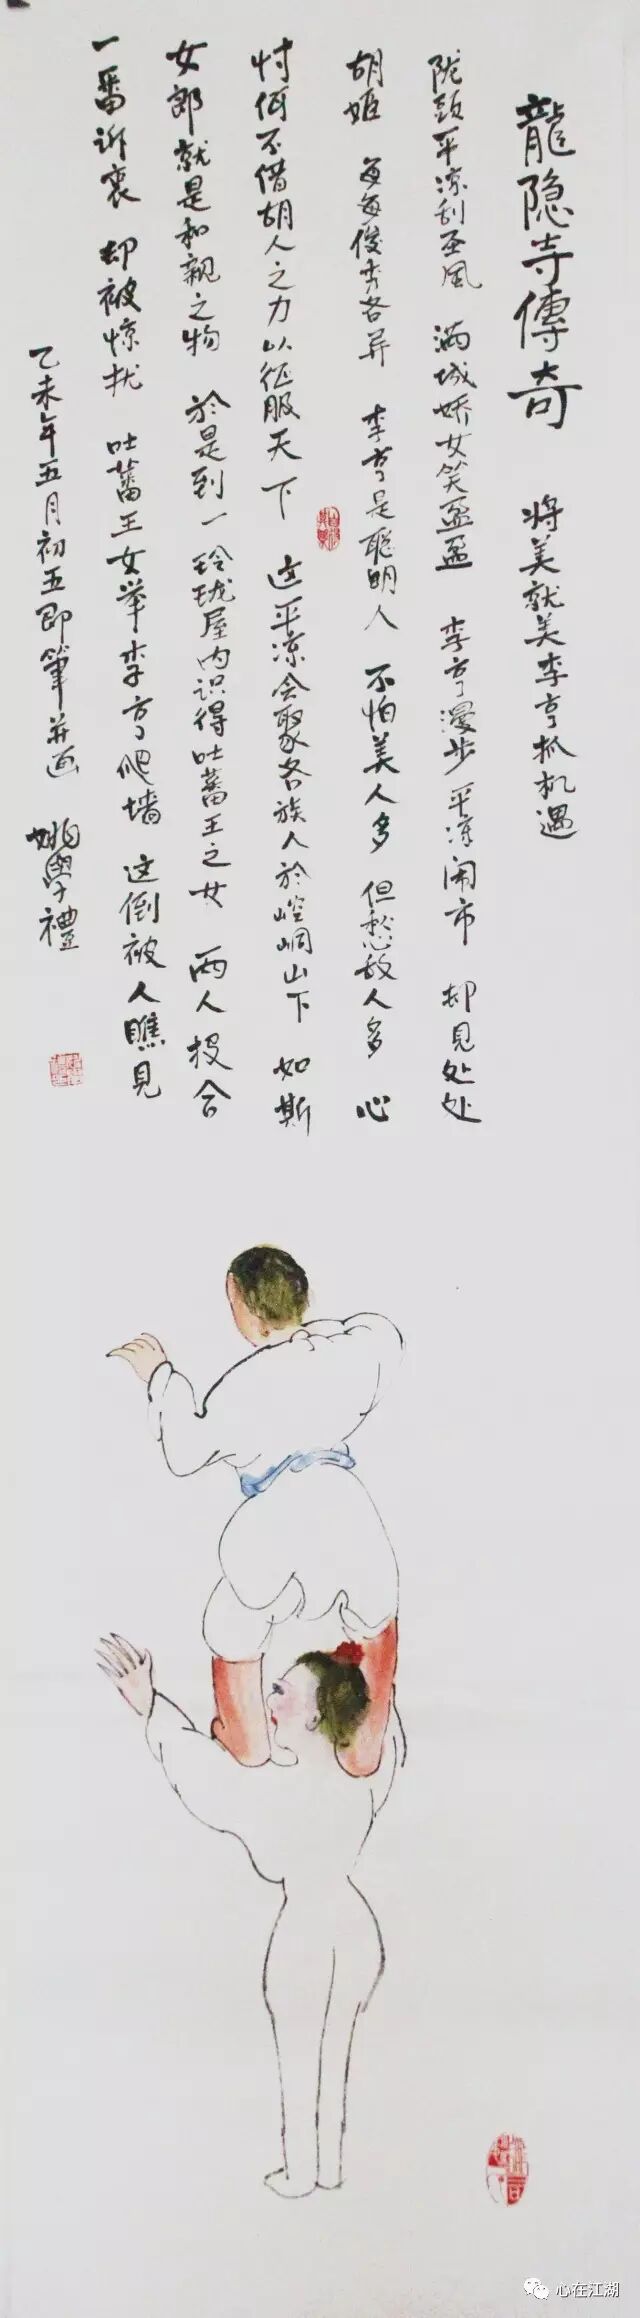 龍隐寺傳奇 将美就美李亨抓机遇
陇頭平凉刮圣風 满城娇女笑盈盈 李亨漫步平凉闹市 却見处处
胡姬 每每俊秀各异 李亨是聪明人 不怕美人多 但愁敌人多 心
忖何不借胡人之力以征服天下 这平凉会聚各族人於崆峒山下 如斯
女郎就是和親之物 於是到一玲珑屋内识得吐蕃王之女 两人投合
一番诉衷 却被惊扰 吐蕃王女举李亨爬墙 这倒被人瞧見
乙未年五月初五即筆并画 姚學禮
心在江湖